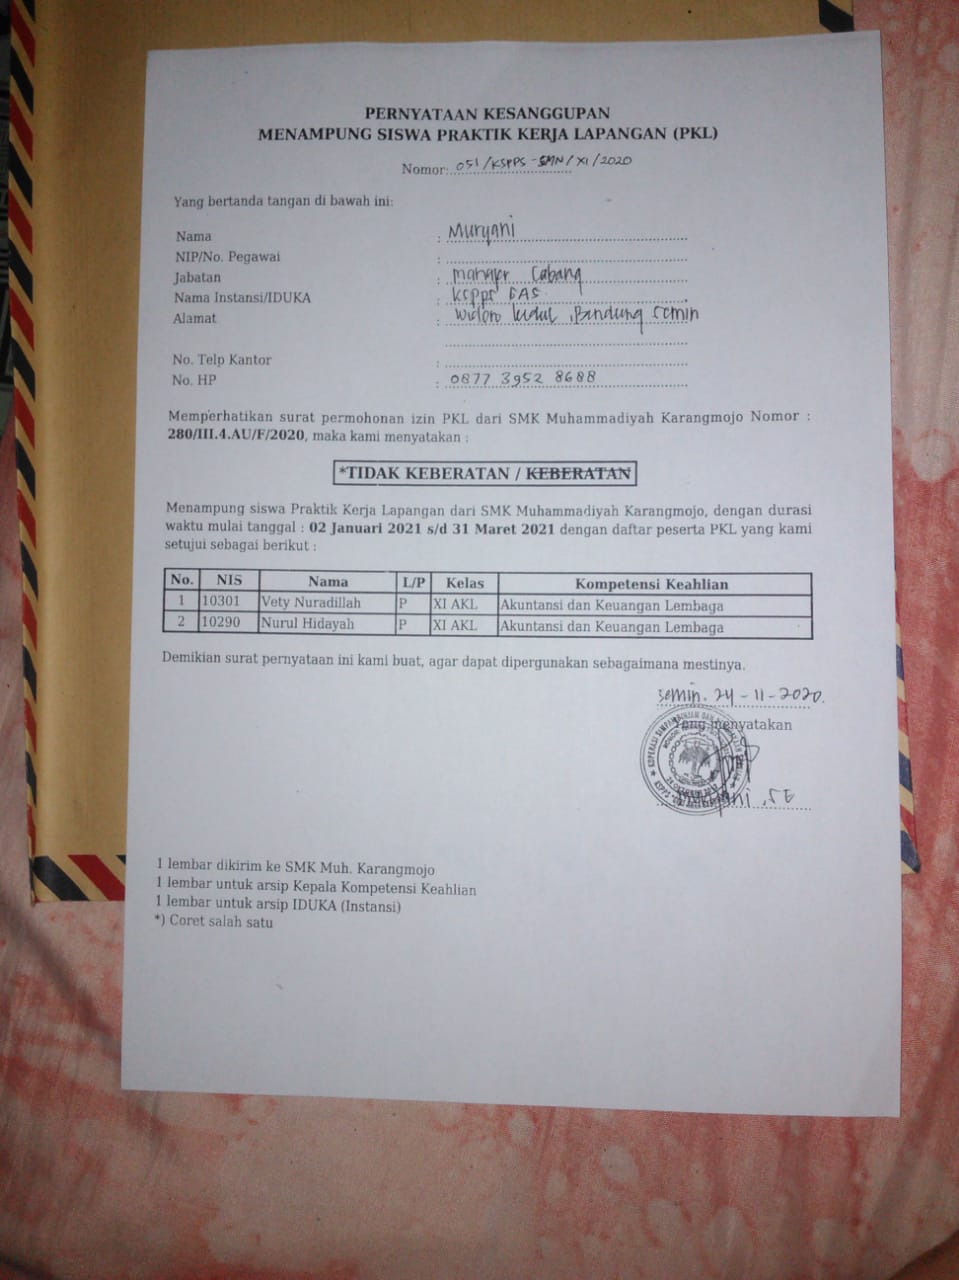 PERNYATAAN KESANGGUPAN
MENAMPUNG SISWA PRAKTIK KERJA LAPANGAN (PKL)
Nomor: 051/KSPPS-SMN/XI/2020
Yang bertanda tangan di bawah ini:
Nama : Muryani
NIP/No. Pegawai :
Jabatan : Manajer Cabang
Nama Instansi/IDUKA : KSPPS DAS
Alamat : Widoro kidul, Bandung Semin
No. Telp Kantor :
No. HP : 0877 3952 8688
Memperhatikan surat permohonan izin PKL dari SMK Muhammadiyah Karangmojo Nomor :
280/III.4.AU/F/2020, maka kami menyatakan :
*TIDAK KEBERATAN / KEBERATAN
Menampung siswa Praktik Kerja Lapangan dari SMK Muhammadiyah Karangmojo, dengan durasi
waktu mulai tanggal : 02 Januari 2021 s/d 31 Maret 2021 dengan daftar peserta PKL yang kami
setujui sebagai berikut :
No. NIS Nama L/P Kelas Kompetensi Keahlian
1 10301 Vety Nuradillah P XI AKL Akuntansi dan Keuangan Lembaga
2 10290 Nurul Hidayah P XI AKL Akuntansi dan Keuangan Lembaga
Demikian surat pernyataan ini kami buat, agar dapat dipergunakan sebagaimana mestinya.
Semin. 24-11-2020.
Yang menyatakan
KOPERASI SIMPAN PINJAM DAN
KSPPS
Muryani, SE
1 lembar dikirim ke SMK Muh. Karangmojo
1 lembar untuk arsip Kepala Kompetensi Keahlian
1 lembar untuk arsip IDUKA (Instansi)
*) Coret salah satu